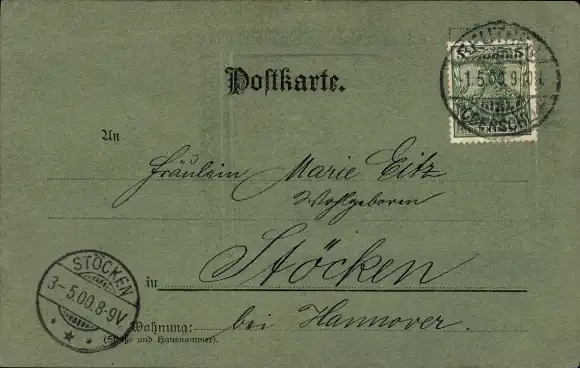 Postkarte.
5 5
1.5.00.9
An
Fräulein Marie Eitz
Wohlgeboren
in Stöcken
STÖCKEN
3-5.00.8-9V.
Wohnung:
(Straße und Hausnummer).
bei Hannover.